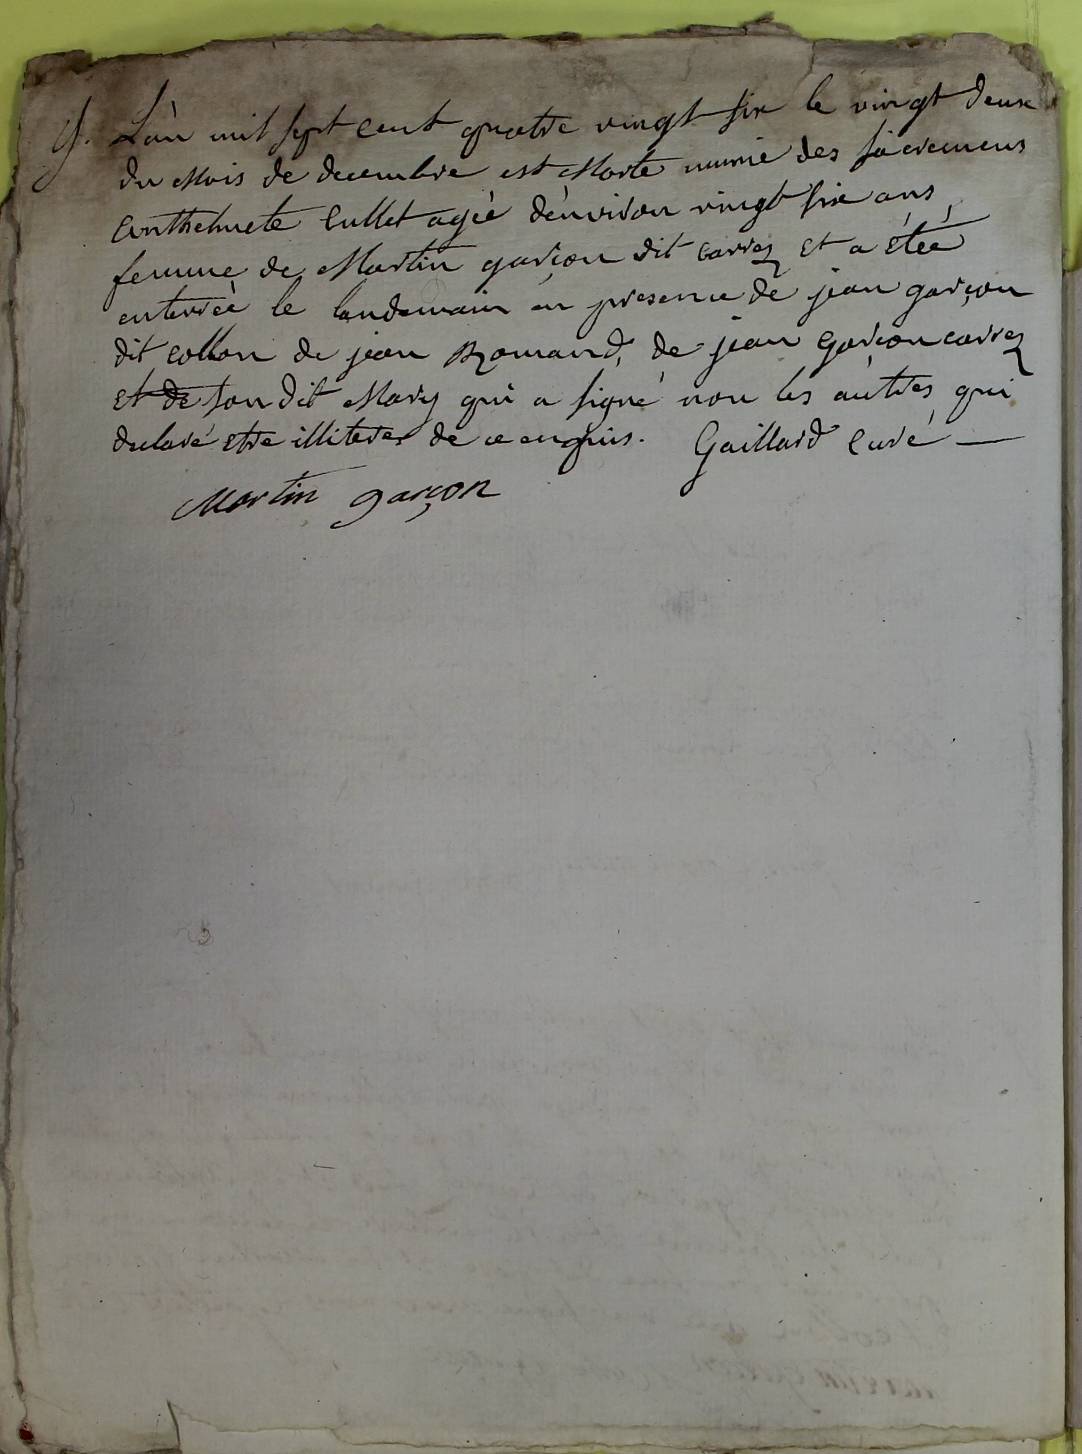 9. L'an mil sept cent quatre vingt six le vingt deux
du Mois de decembre est Morte munie des sacremens
Anthelmete Cullet agée d'environ vingt six ans
femme de Martin garçon dit carrez et a étéé
enterrée le landemain en presence de jean garçon
dit collon de jean Romand, de jean garçon carrez
et de son dit Mary qui a signé non les autres qui
declaré etre illiteres de ce enquis. Gaillard curé —
Martin garçon